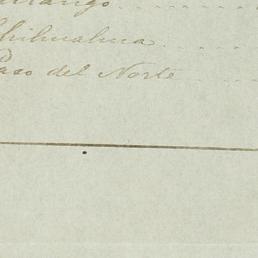 Chihuahua
Paso del Norte